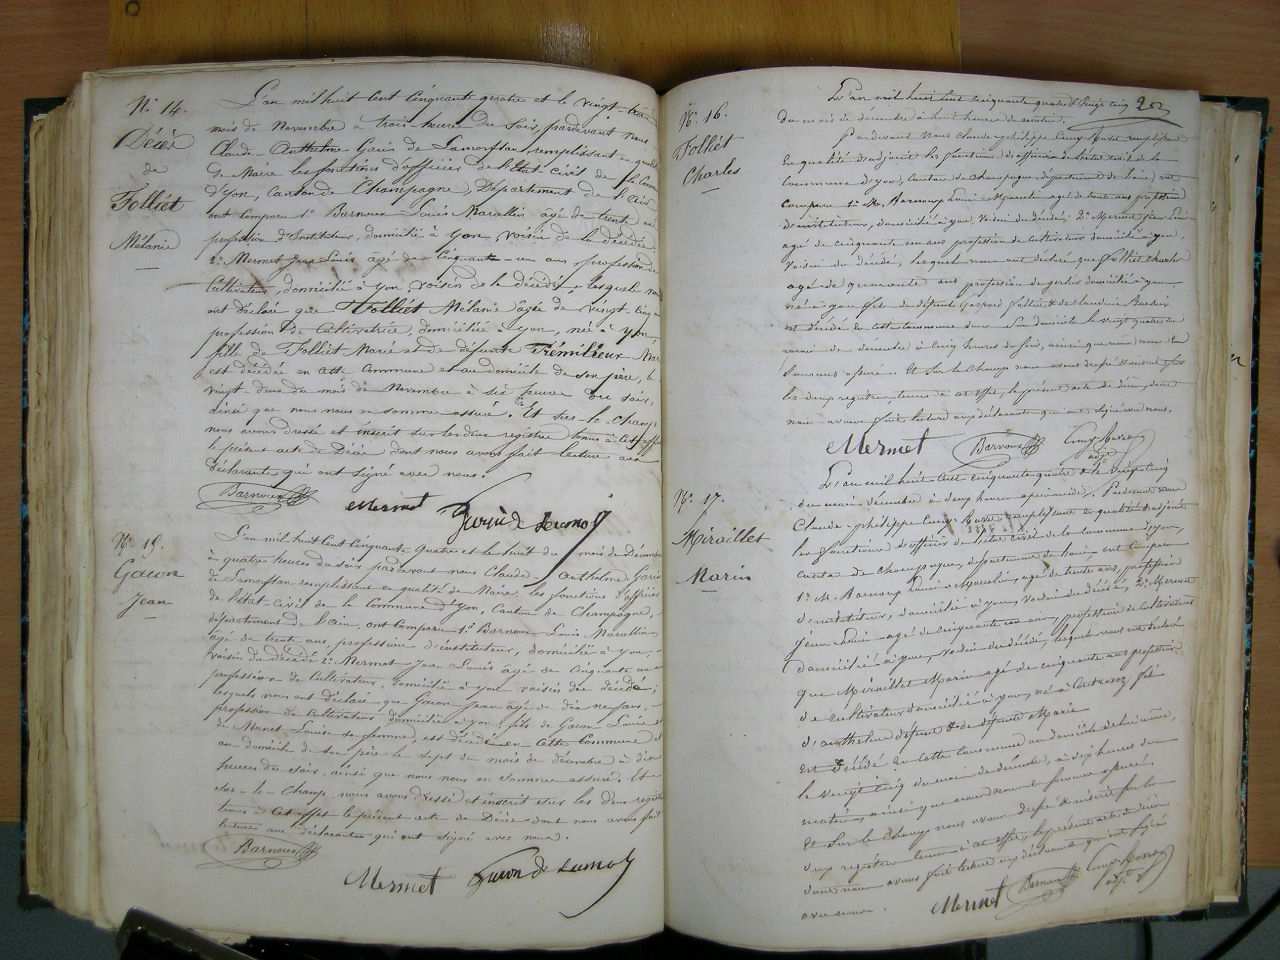 N° 14.
Décès
de
Folliet
Mélanie
L'an mil huit cent cinquante quatre et le vingt trois
mois de Novembre à trois heures du soir, pardevant nous
Claude Anthelme Garin de Lamorflan, remplissant en qualité
de Maire les fonctions d'officier de l'état civil de la Commune
d'yon, canton de Champagne, Département de l'Ain
ont comparu 1° Barnoux Louis Marcellin âgé de trente ans
profession d'Instituteur, domicilié à yon, voisin de la décédée
2° Mermet Jean Louis âgé de cinquante un ans profession de
Cultivateur, domicilié à yon voisin de la décédée, lesquels nous
ont déclaré que Folliet Mélanie âgée de vingt cinq
profession de cultivatrice, domiciliée à yon, née à yon,
fille de Folliet Marie et de défunte Trémilieux
est décédée en cette commune au domicile de son père, le
vingt deux du mois de Novembre à six heures du soir,
ainsi que nous nous en sommes assuré. Et sur le champ
nous avons dressé et inscrit sur les deux registres tenus à cet effet
le présent acte de Décès dont nous avons fait lecture aux
déclarants qui ont signé avec nous.
Barnoux
Mermet
Garin de Lamorf
N° 15.
Gacon
Jean
L'an mil huit cent cinquante quatre et le huit du mois de Décembre
à quatre heures du soir pardevant nous Claude Anthelme Garin
de Lamorflan remplissant en qualité de Maire, les fonctions d'officier
de l'état civil de la Commune d'yon, Canton de Champagne,
département de l'ain, ont comparu 1° Barnoux Louis Marcellin
âgé de trente ans, profession d'instituteur, domicilié à yon,
voisin du décédé 2° Mermet Jean Louis âgé de cinquante un
profession de Cultivateur domicilié à yon voisin du décédé;
lesquels nous ont déclaré que Gacon Jean âgé de dix neuf ans,
profession de Cultivateur domicilié à yon, fils de Gacon Louis et
de Monet Louise sa femme, est décédé en cette Commune et
au domicile de son père le sept du mois de décembre à dix
heures du soir, ainsi que nous nous en sommes assuré. Et
sur-le-champ nous avons dressé et inscrit sur les deux registres
tenus à cet effet le présent acte de Décès dont nous avons fait
lecture aux déclarants qui ont signé avec nous.
Barnoux
Mermet
Garin de Lamorf
N° 16.
Folliet
Charles
L'an mil huit cent cinquante quatre et vingt cinq
du mois de décembre à huit heures du matin.
Pardevant Nous Claude philippe Cuzy remplissant
en qualité d'adjoint les fonctions d'officier de l'état civil de la
Commune d'yon, Canton de Champagne, département de l'ain, ont
comparu 1° M. Barnoux Louis Marcelin agé de trente ans profession
d'instituteur, domicilié à yon voisin du décédé; 2° Mermet Jean Louis
agé de cinquante un ans profession de cultivateur domicilié à yon,
voisin du décédé, lesquels nous ont déclaré que Folliet Charles
agé de quarante ans profession de domicilié à yon
né à yon fils de défunts Folliet et de
est décédé en cette commune dans son domicile le vingt quatre du
mois de décembre à cinq heures du soir, ainsi que nous nous en
sommes assuré. Et sur le champ nous avons dressé et inscrit sur
les deux registres tenus à cet effet, le présent acte de décès, dont
nous avons fait lecture aux déclarants qui ont signé avec nous.
Mermet
Barnoux
Cuzy
adjt
N° 17.
Miraillet
Marin
L'an mil huit cent cinquante quatre et le vingt cinq
du mois décembre à deux heures après midi. Pardevant nous
Claude philippe Cuzy remplissant en qualité d'adjoint
les fonctions d'officier de l'état civil de la commune d'yon,
canton de Champagne, département de l'ain, ont comparu
1° M. Barnoux Louis Marcelin, agé de trente ans, profession
d'instituteur, domicilié à yon, voisin du décédé, 2° Mermet
Jean Louis agé de cinquante un ans, profession de cultivateur
domicilié à yon, voisin du décédé, lesquels nous ont déclaré
que Miraillet Marin agé de cinquante ans profession
de cultivateur domicilié à yon, né à fils
d'anthelme défunt et de défunte Marie
est Décédé en cette Commune au domicile de lui même,
le vingt cinq du mois de décembre, à dix heures du
matin, ainsi que nous nous en sommes assuré.
Et sur le champ nous avons dressé et inscrit sur les
deux registres tenus à cet effet, le présent acte de décès
dont nous avons fait lecture aux déclarants qui ont signé
avec nous.
Mermet
Barnoux
Cuzy
adjt